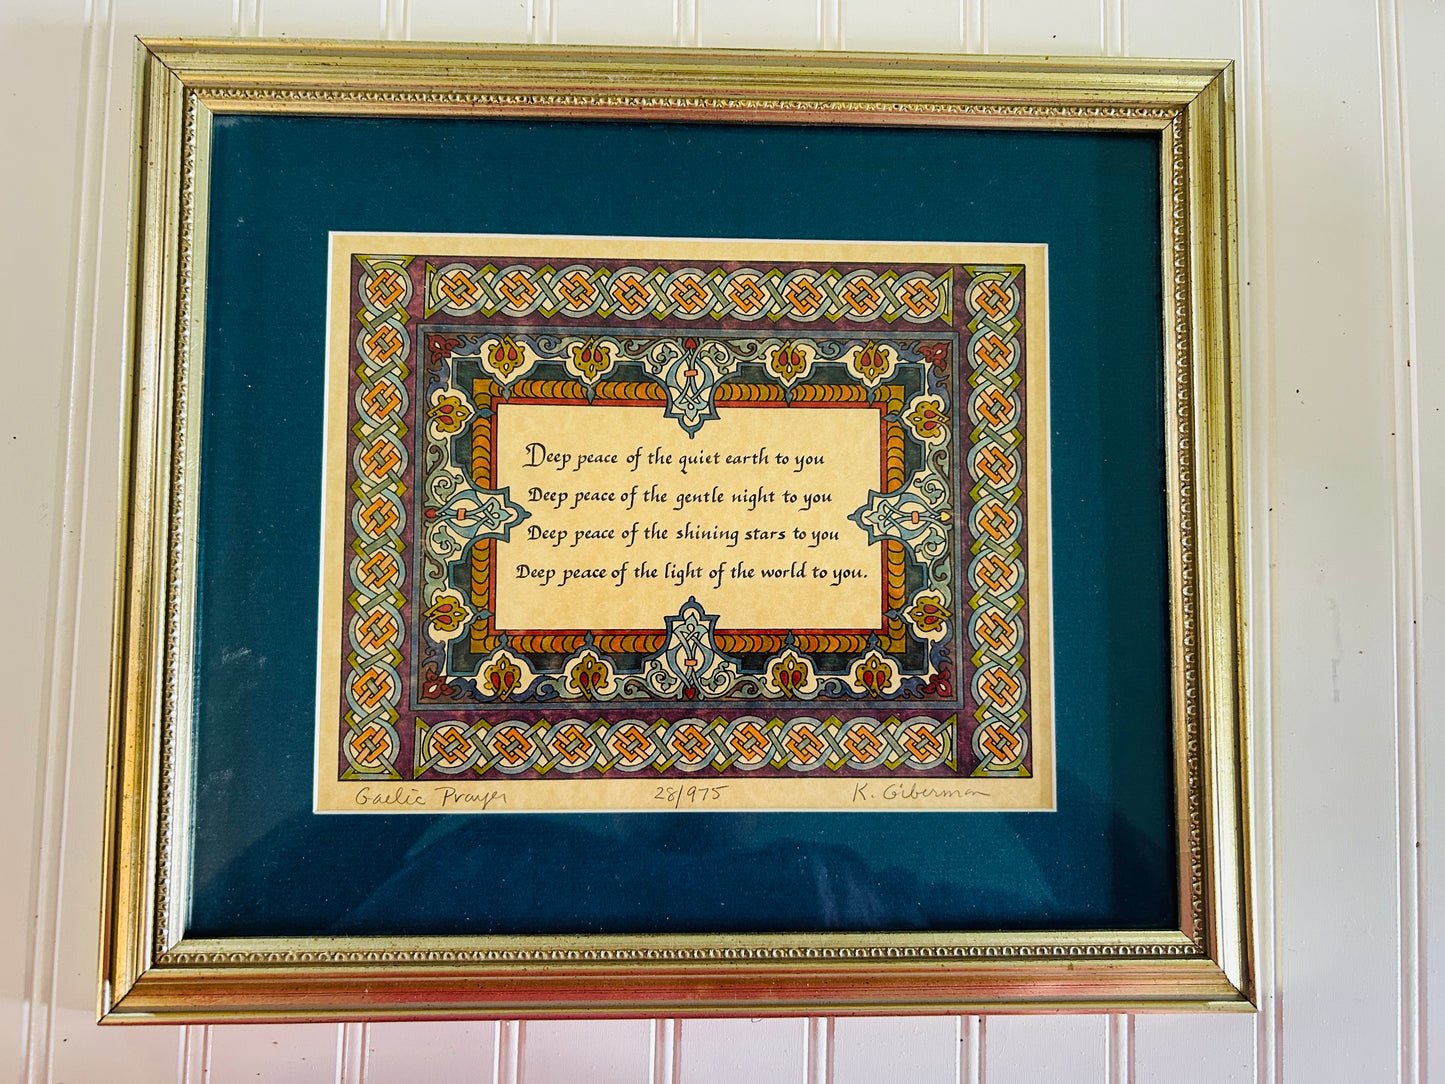 Deep peace of the quiet earth to you
Deep peace of the gentle night to you
Deep peace of the shining stars to you
Deep peace of the light of the world to you.
Gaelic Prayer 28/975 K. Giberman